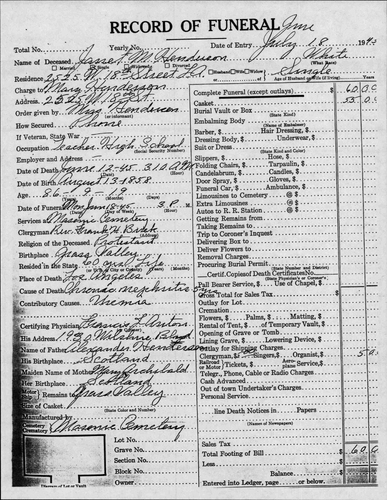 RECORD OF FUNERAL
Total No. Yearly No. Date of Entry June 18 1945
Name of Deceased Janet M. Henderson White
Married Divorced (What Race)
Residence 2525 W. 18th Street L.A. Husband Wife Widow of Single
Age of Husband or Wife (if living) Years
Charge to Mary Henderson
Address 2525 W.
Order given by Miss Henderson
How Secured Phone
If Veteran, State War
Occupation Teacher High School
(Social Security Number)
Employer and Address
Date of Death June 12-45 3:10 A.M.
Date of Birth August 13-1858
Age 86-9-19
Date of Funeral Mon June 18-45 3 P.M.
Services at Masonic Cemetery
Clergyman Rev. Frank H. Buck
Religion of the Deceased Protestant
Birthplace Grass Valley
Resided in the State 60
Place of Death Los Angeles
Cause of Death Chronic nephritis
Contributory Causes Uremia
Certifying Physician Francis L. Anton
His Address 1930 Wilshire Blvd
Name of Father Alexander Henderson
His Birthplace Scotland
Maiden Name of Mother Mary Archibald
Her Birthplace Scotland
Motor Remains to Grass Valley
Size of Casket
(State Color and Number)
Manufactured by
Cemetery Masonic Cemetery
Lot No.
Grave No.
Section No.
Block No.
Owner
Diagram of Lot or Vault
Complete Funeral (except outlays) 60.00
Casket
Burial Vault or Box
(State Kind)
Embalming Body
(Name of Embalmer)
Barber, $ Hair Dressing, $
Dressing Body, $ Underwear, $
Suit or Dress
(State Kind and Color)
Slippers, $ Hose, $
Folding Chairs, $ Tarpaulin, $
Candelabrum, $ Candles, $
Door Spray, $ Gloves, $
Funeral Car, $ Ambulance, $
Limousines to Cemetery @ $
Extra Limousines @ $
Autos to R. R. Station @ $
Getting Remains from
Taking Remains to
Trip to Coroner's Inquest
Delivering Box to
Deliver Flowers to
Removal Charges
Procuring Burial Permit
(State Number and District)
Certif. Copies of Death Certificates No.
Pall Bearer Service, $ Use of Chapel, $
Gross Total for Sales Tax $
Outlay for Lot
Cremation
Flowers, $ Palms, $ Matting, $
Rental of Tent, $ of Temporary Vault, $
Opening of Grave or Tomb
Lining Grave, $ Lowering Device, $
Outlay for Shipping Charges
Clergyman, $ Singers, $ Organist, $ 5.00
Railroad or Motor Tickets, $ Aeroplane Service, $
Telegr., Phone, Cable or Radio Charges
Cash Advanced
Out of town Undertaker's Charges
Personal Service
line Death Notices in Papers
(Names of Newspapers)
Sales Tax
Total Footing of Bill $ 60.00
Less
Balance
Entered into Ledger, page or below.